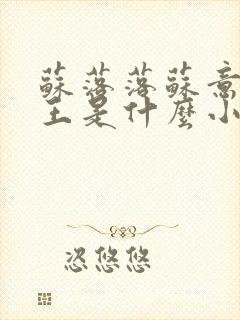 蘇落落蘇意
主是什麼小
恣悠悠